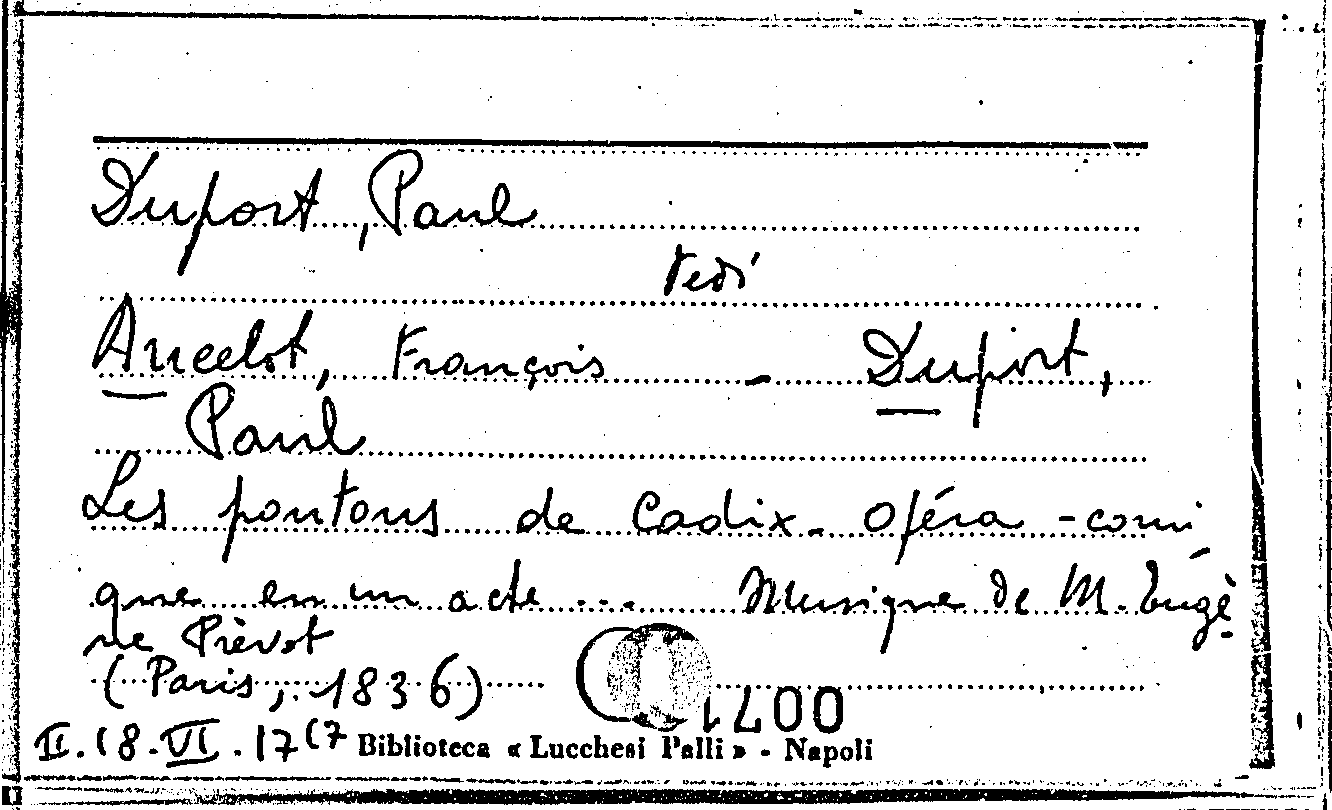 Duport, Paul
vedi
Ancelot, François - Duport,
Paul
Les pontons de Cadix. Opéra-comi
que en un acte ... Musique de M. Eugè-
ne Prèvot
(Paris, 1836)
II. 18. VI. 17(7
Biblioteca « Lucchesi Palli » - Napoli